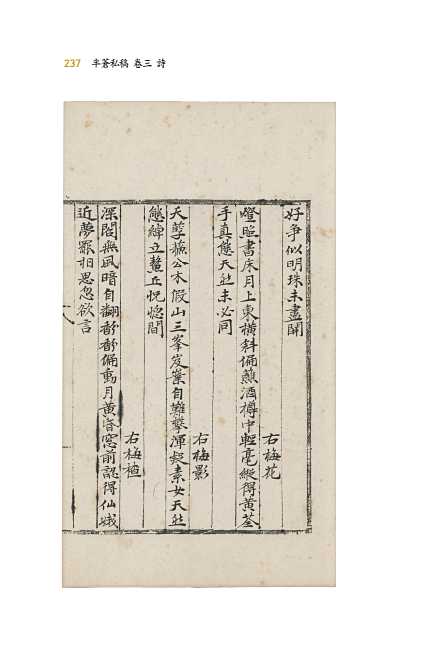 237 半蒼私稿 卷三 詩
好爭似明珠未盡開
右梅花
燈照書床月上東橫斜俑蕉酒樽中輕毫縱得黃荃
手真態天然未必同
右梅影
天孽攙公木假山三峯岌嶪自難攀渾疑素女天然
態綽立鰲丘怳惚間
右梅植
深閤無風暗自翻 俑動月黃昏窓前認得仙娥
近夢罷相思忽欲言